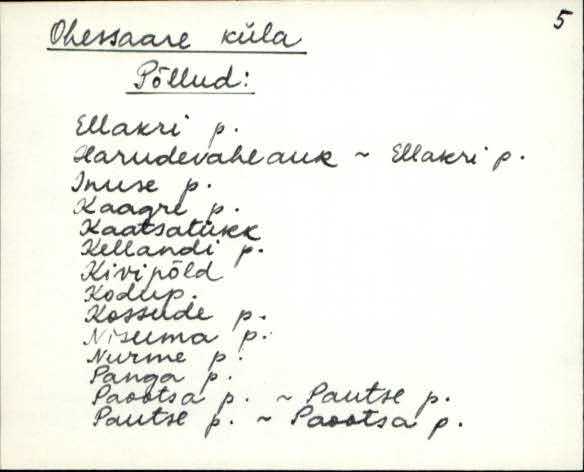 5
Ohessaare küla
Põllud:
Ellakri p.
Harudevaheauk ~ Ellakri p.
Inuse p.
Kaagre p.
Kaatsatükk
Kellandi p.
Kivipõld
Kodup.
Kossude p.
Nisuma p.
Nurme p.
Panga p.
Paootsa p. ~ Pautse p.
Pautse p. ~ Paootsa p.